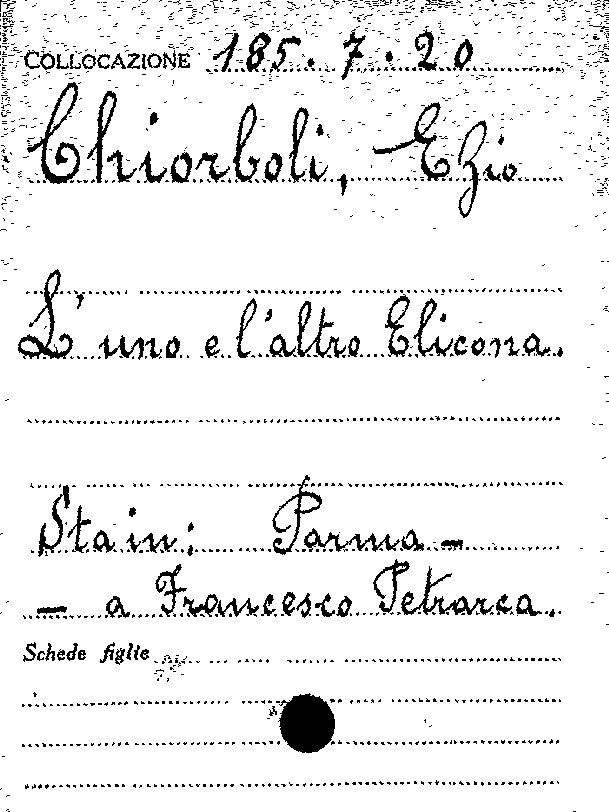 COLLOCAZIONE 185.7.20
Chiorboli, Ezio
L'uno e l'altro Elicona.
Sta in: Parma -
- a Francesco Petrarca.
Schede figlie